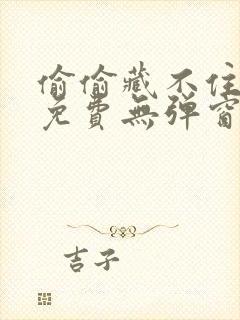 偷偷藏不住
免費無彈窗
吉子